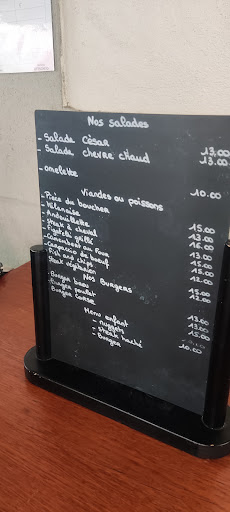 Nos salades
- Salade César 13.00
- Salade chèvre chaud 13.00
- omelette 10.00
Viandes ou poissons
- Pièce du boucher 15.00
- Milanaise 13.00
- Andouillette 16.00
- Steak à cheval 13.00
- Figatelli grillé 15.00
- Camembert au four 15.00
- Carpaccio de boeuf 15.00
- Fish and chips
Steak végétarien 12.00
Nos Burgers
- Burger boeuf 15.00
- Burger poulet 15.00
Burger Corse
Menu enfant
- nuggets
- steak haché
- Burger 10.00